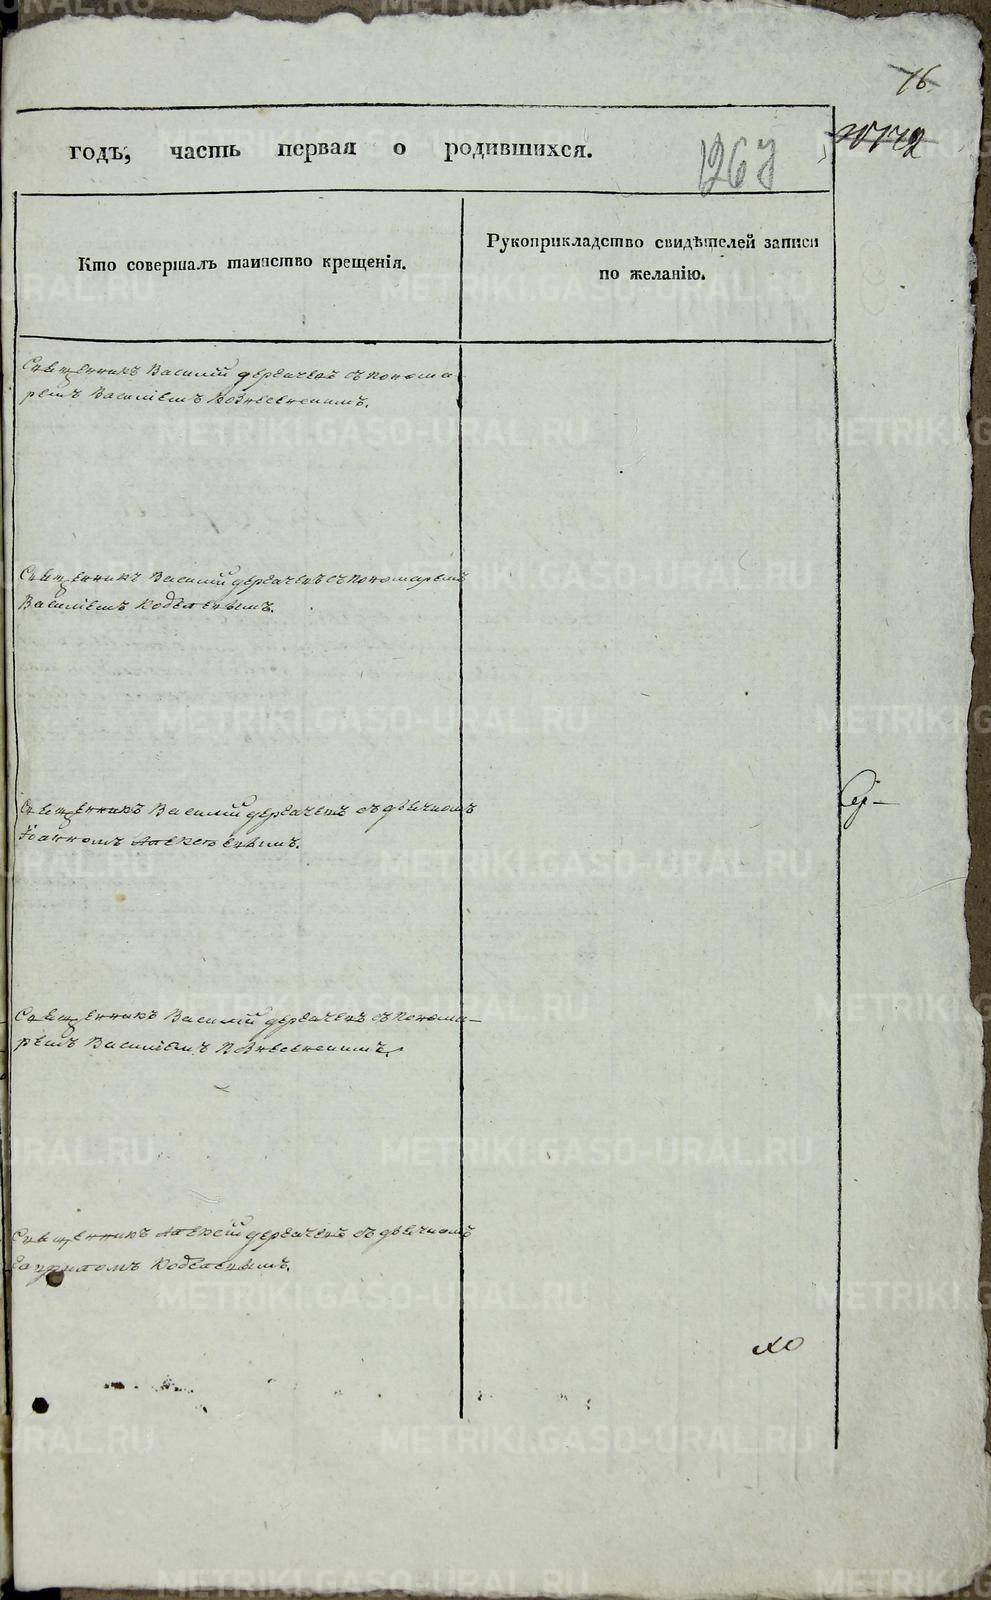 16.
годъ, часть первая о родившихся.
1263
Кто совершалъ таинство крещенія.
Рукоприкладство свидѣтелей записи
по желанію.
Священникъ Василій Дерябинъ съ понома-
ремъ Василіемъ Вознесенскимъ.
Священникъ Василій Дерябинъ съ пономаремъ
Василіемъ Кобелевымъ.
Священникъ Василій Дерябинъ съ дьячкомъ
Іоанномъ Алексѣевымъ.
Священникъ Василій Дерябинъ съ понома-
ремъ Василіемъ Вознесенскимъ.
Священникъ Алексѣй Дерябинъ съ дьячкомъ
Кобелевымъ.
METRIKI.GASO-URAL.RU